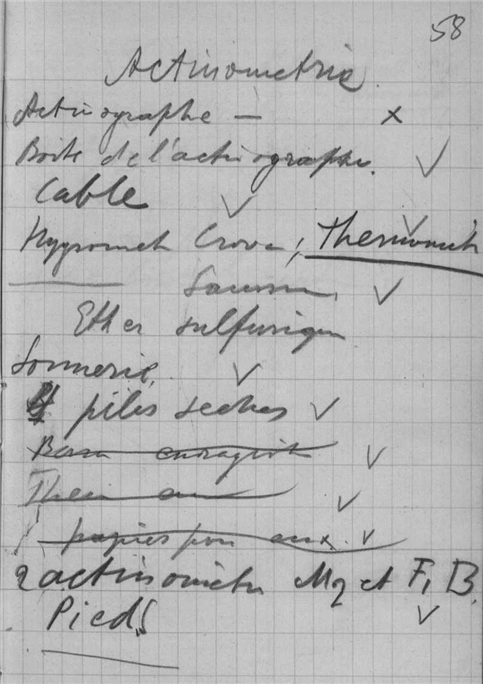 58
Actinometrie
Actinographe — x
Boite de l'actinographe. ✓
Cable ✓
Hygromet Crova ; Thermomet ✓
✓
Ether sulfurique
Sonnerie. ✓
piles seches ✓
enregist ✓
✓
papiers pour ✓
2 actinometr et F, B.
Pieds ✓